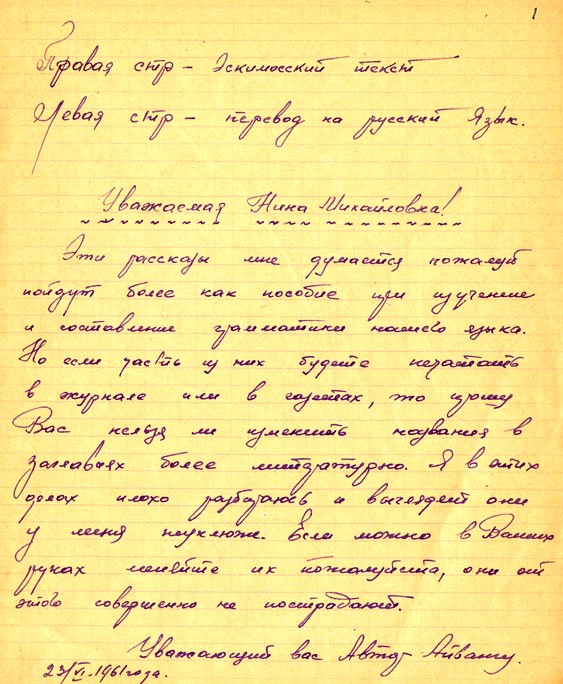 1
Правая стр - Эскимосский текст
Левая стр - перевод на русский язык.
Уважаемая Нина Михайловна!
Эти рассказы мне думается пожалуй
пойдут более как пособие при изучение
и составление грамматики нашего языка.
Но если часть из них будете печатать
в журнале или в газетах, то прошу
Вас нельзя ли изменить названия в
заглавиях более литературно. Я в этих
делах плохо разбираюсь и выглядет они
у меня неуклюже. Если можно в Ваших
руках меняйте их пожалуйста, они от
этого совершенно не пострадают.
Уважающий вас Автор Айвангу.
23/VI.1961 года.